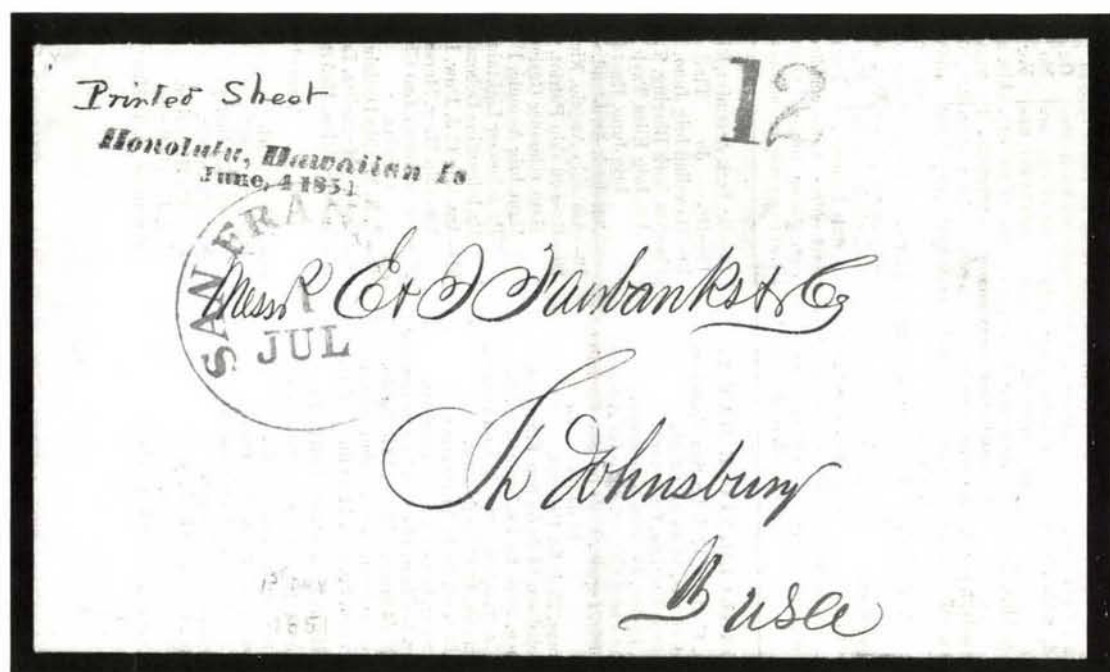 Printed Sheet
12
Honolulu, Hawaiian Is
June, 4 1851
SAN FRAN
1
JUL
Messrs E & T Fairbanks & Co
St Johnsbury
USA
1st DAY
1851